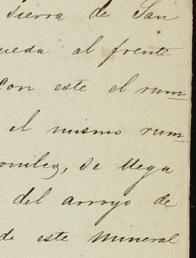 Sierra de San
ueda al frente
con este el rum
el mismo rum
se llega
del arroyo de
de este mineral